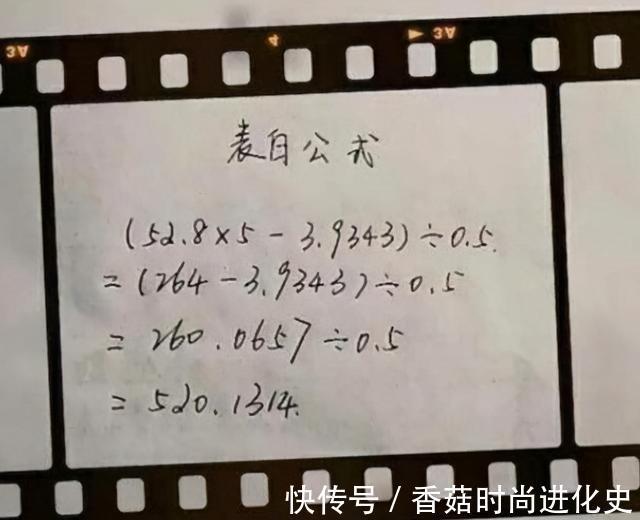 3A
4
3A
表白公式
(52.8×5-3.9343)÷0.5.
=(264-3.9343)÷0.5
=260.0657÷0.5
=520.1314.
快传号/香菇时尚进化史